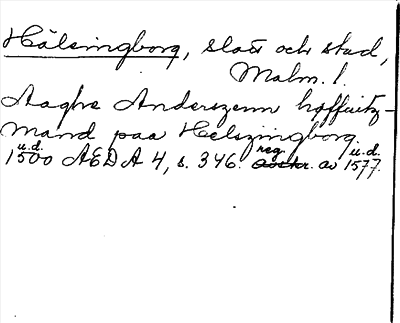 Hälsingborg, slott och stad,
Malm. l.
Aaghe Anderszenn høffuitz-
mand paa Helszingborg.
u.d. 1500 AEDA 4, s. 346. reg. av u.d. 1577.